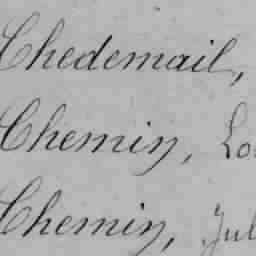 Chedemail,
Chemin, Lo
Chemin, Jul